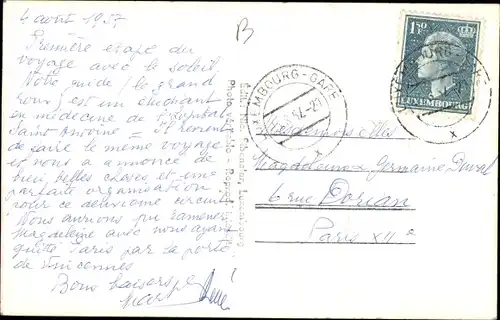 4 août 1957
Première étape du
voyage avec le soleil
Notre guide (le grand
roux) est un étudiant
en médecine de l'Hôpital
Saint Antoine = il revient
de faire le même voyage
et nous a annoncé de
bien belles choses et une
parfaite organisation
pour ce deuxième circuit
Nous aurions pu ramener
Magdeleine avec nous ayant
quitté Paris par la porte
de Vincennes
Bons baisers
B
1.50
LUXEMBOURG
LUXEMBOURG-GARE
Mesdemoiselles
Magdeleine & Germaine Duval
6 rue Dorian
Paris XIIe